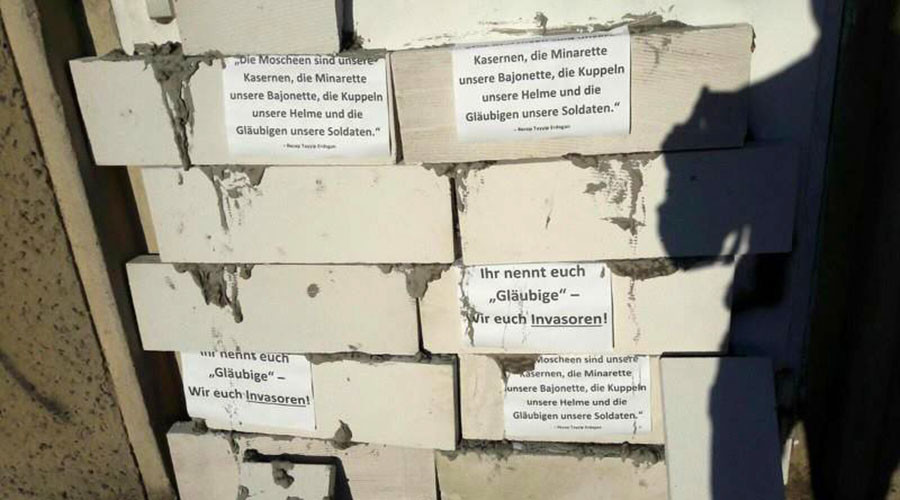 „Die Moscheen sind unsere
Kasernen, die Minarette
unsere Bajonette, die Kuppeln
unsere Helme und die
Gläubigen unsere Soldaten.“
- Recep Tayyip Erdogan
Kasernen, die Minarette
unsere Bajonette, die Kuppeln
unsere Helme und die
Gläubigen unsere Soldaten.“
- Recep Tayyip Erdogan
Ihr nennt euch
„Gläubige“ –
Wir euch Invasoren!
Ihr nennt euch
„Gläubige“ –
Wir euch Invasoren!
Moscheen sind unsere
Kasernen, die Minarette
unsere Bajonette, die Kuppeln
unsere Helme und die
Gläubigen unsere Soldaten.“
- Recep Tayyip Erdogan